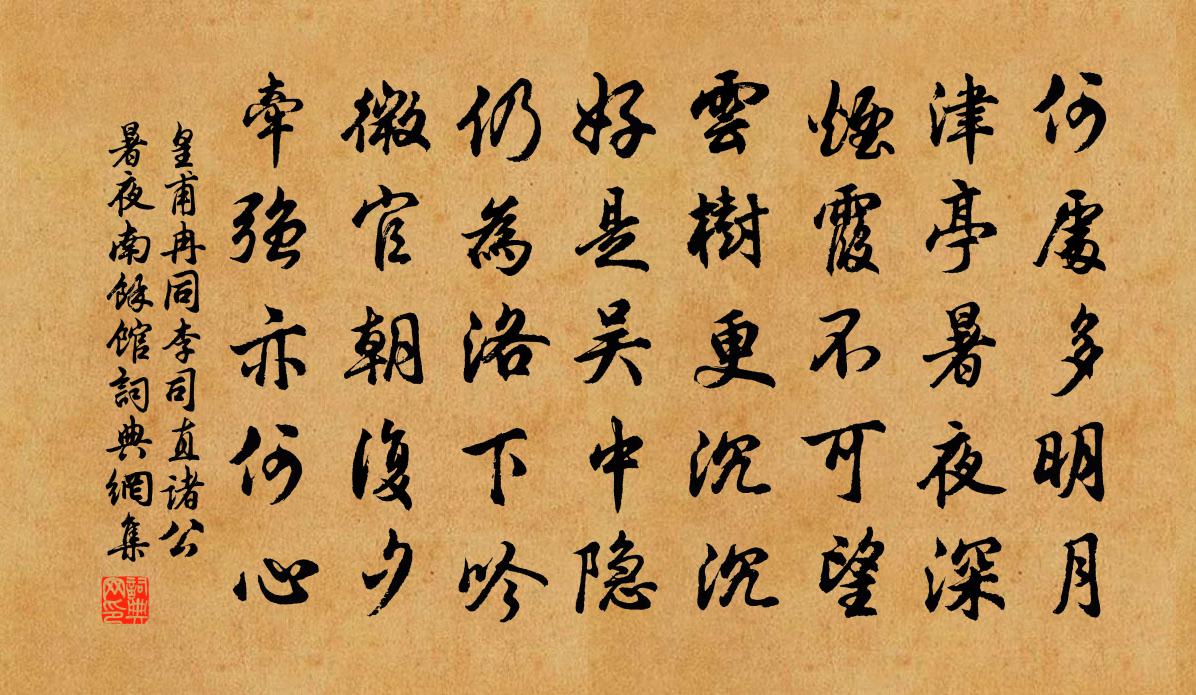 何處多明月
津亭暑夜深
煙霞不可望
雲樹更沉沉
好是吳中隐
仍為洛下吟
微官朝復夕
牽强亦何心
皇甫冉同李司直諸公
暑夜南餘館詞典網集
詞典
网印